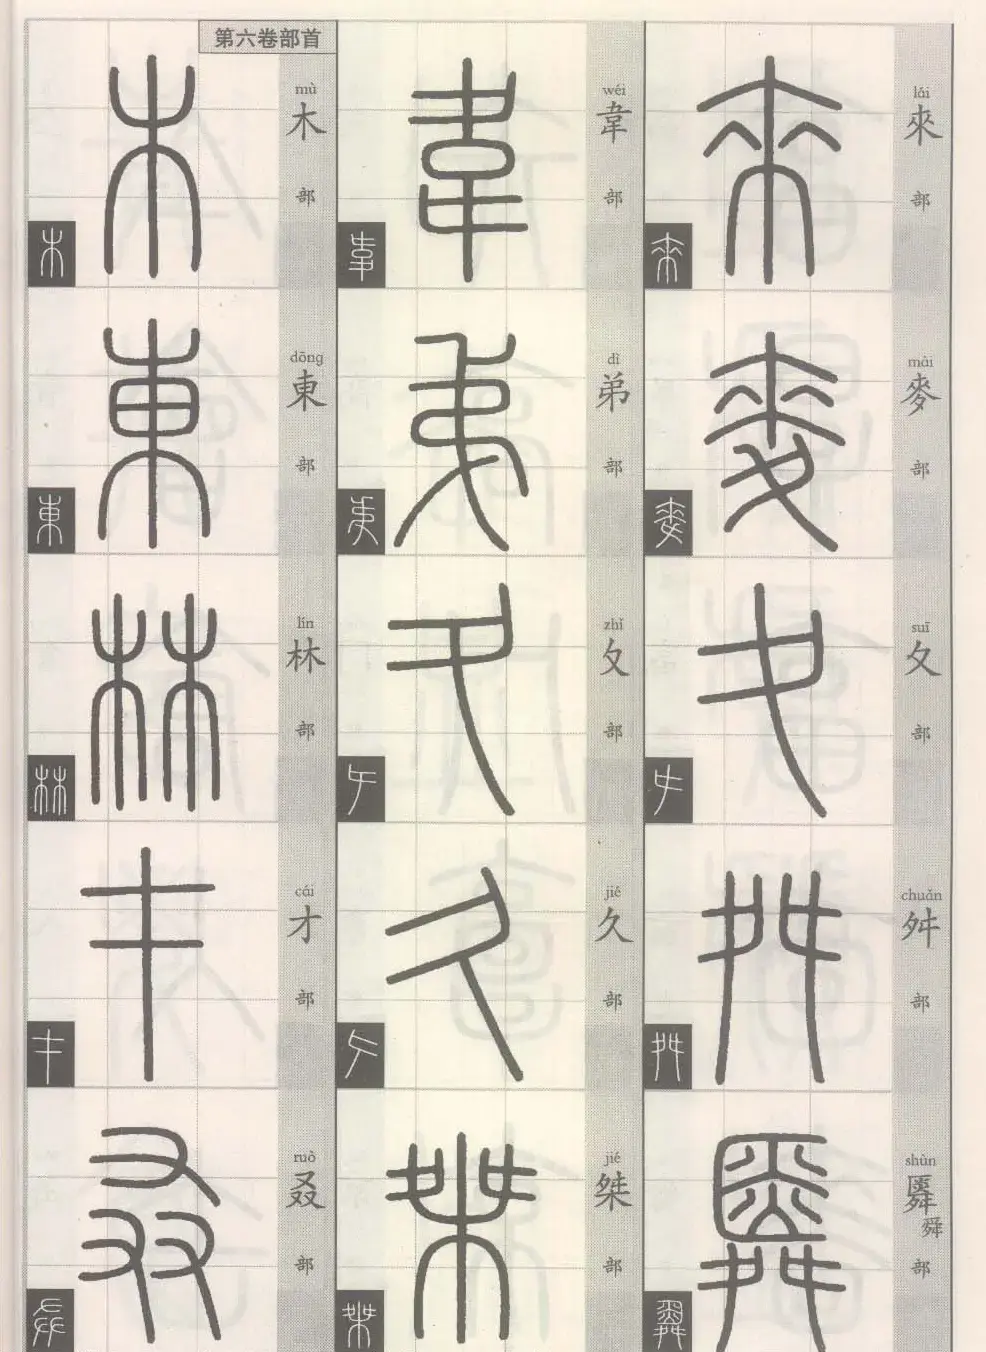 lái
來
部
mài
麥
部
suī
夊
部
chuǎn
舛
部
shùn
舜
部
wéi
韋
部
dì
弟
部
zhǐ
夂
部
jié
久
部
jié
桀
部
第六卷部首
mù
木
部
dōng
東
部
lín
林
部
cái
才
部
ruò
叒
部